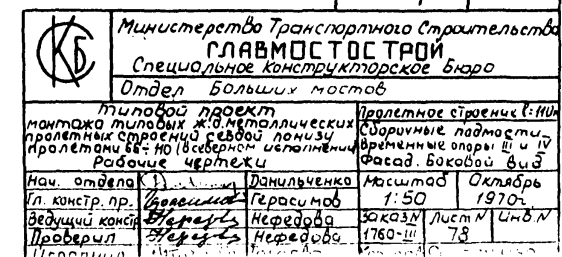 СКБ
Министерство Транспортного Строительства
ГЛАВМОСТОСТРОЙ
Специальное Конструкторское Бюро
Отдел Больших мостов
Типовой проект
монтажа типовых ж.д. металлических
пролетных строений с ездой понизу
пролетами 66-110 (в северном исполнении)
Рабочие чертежи
Пролетное строение ℓ=110м
Сборочные подмости,
временные опоры III и IV
Фасад. Боковой вид
Нач. отдела Данильченко
Гл. констр. пр. Герасимов
Ведущий констр Нефедова
Проверил Нефедова
Масштаб 1:50
Октябрь 1970г.
Заказ N 1760-III
Лист N 78
Инв. N